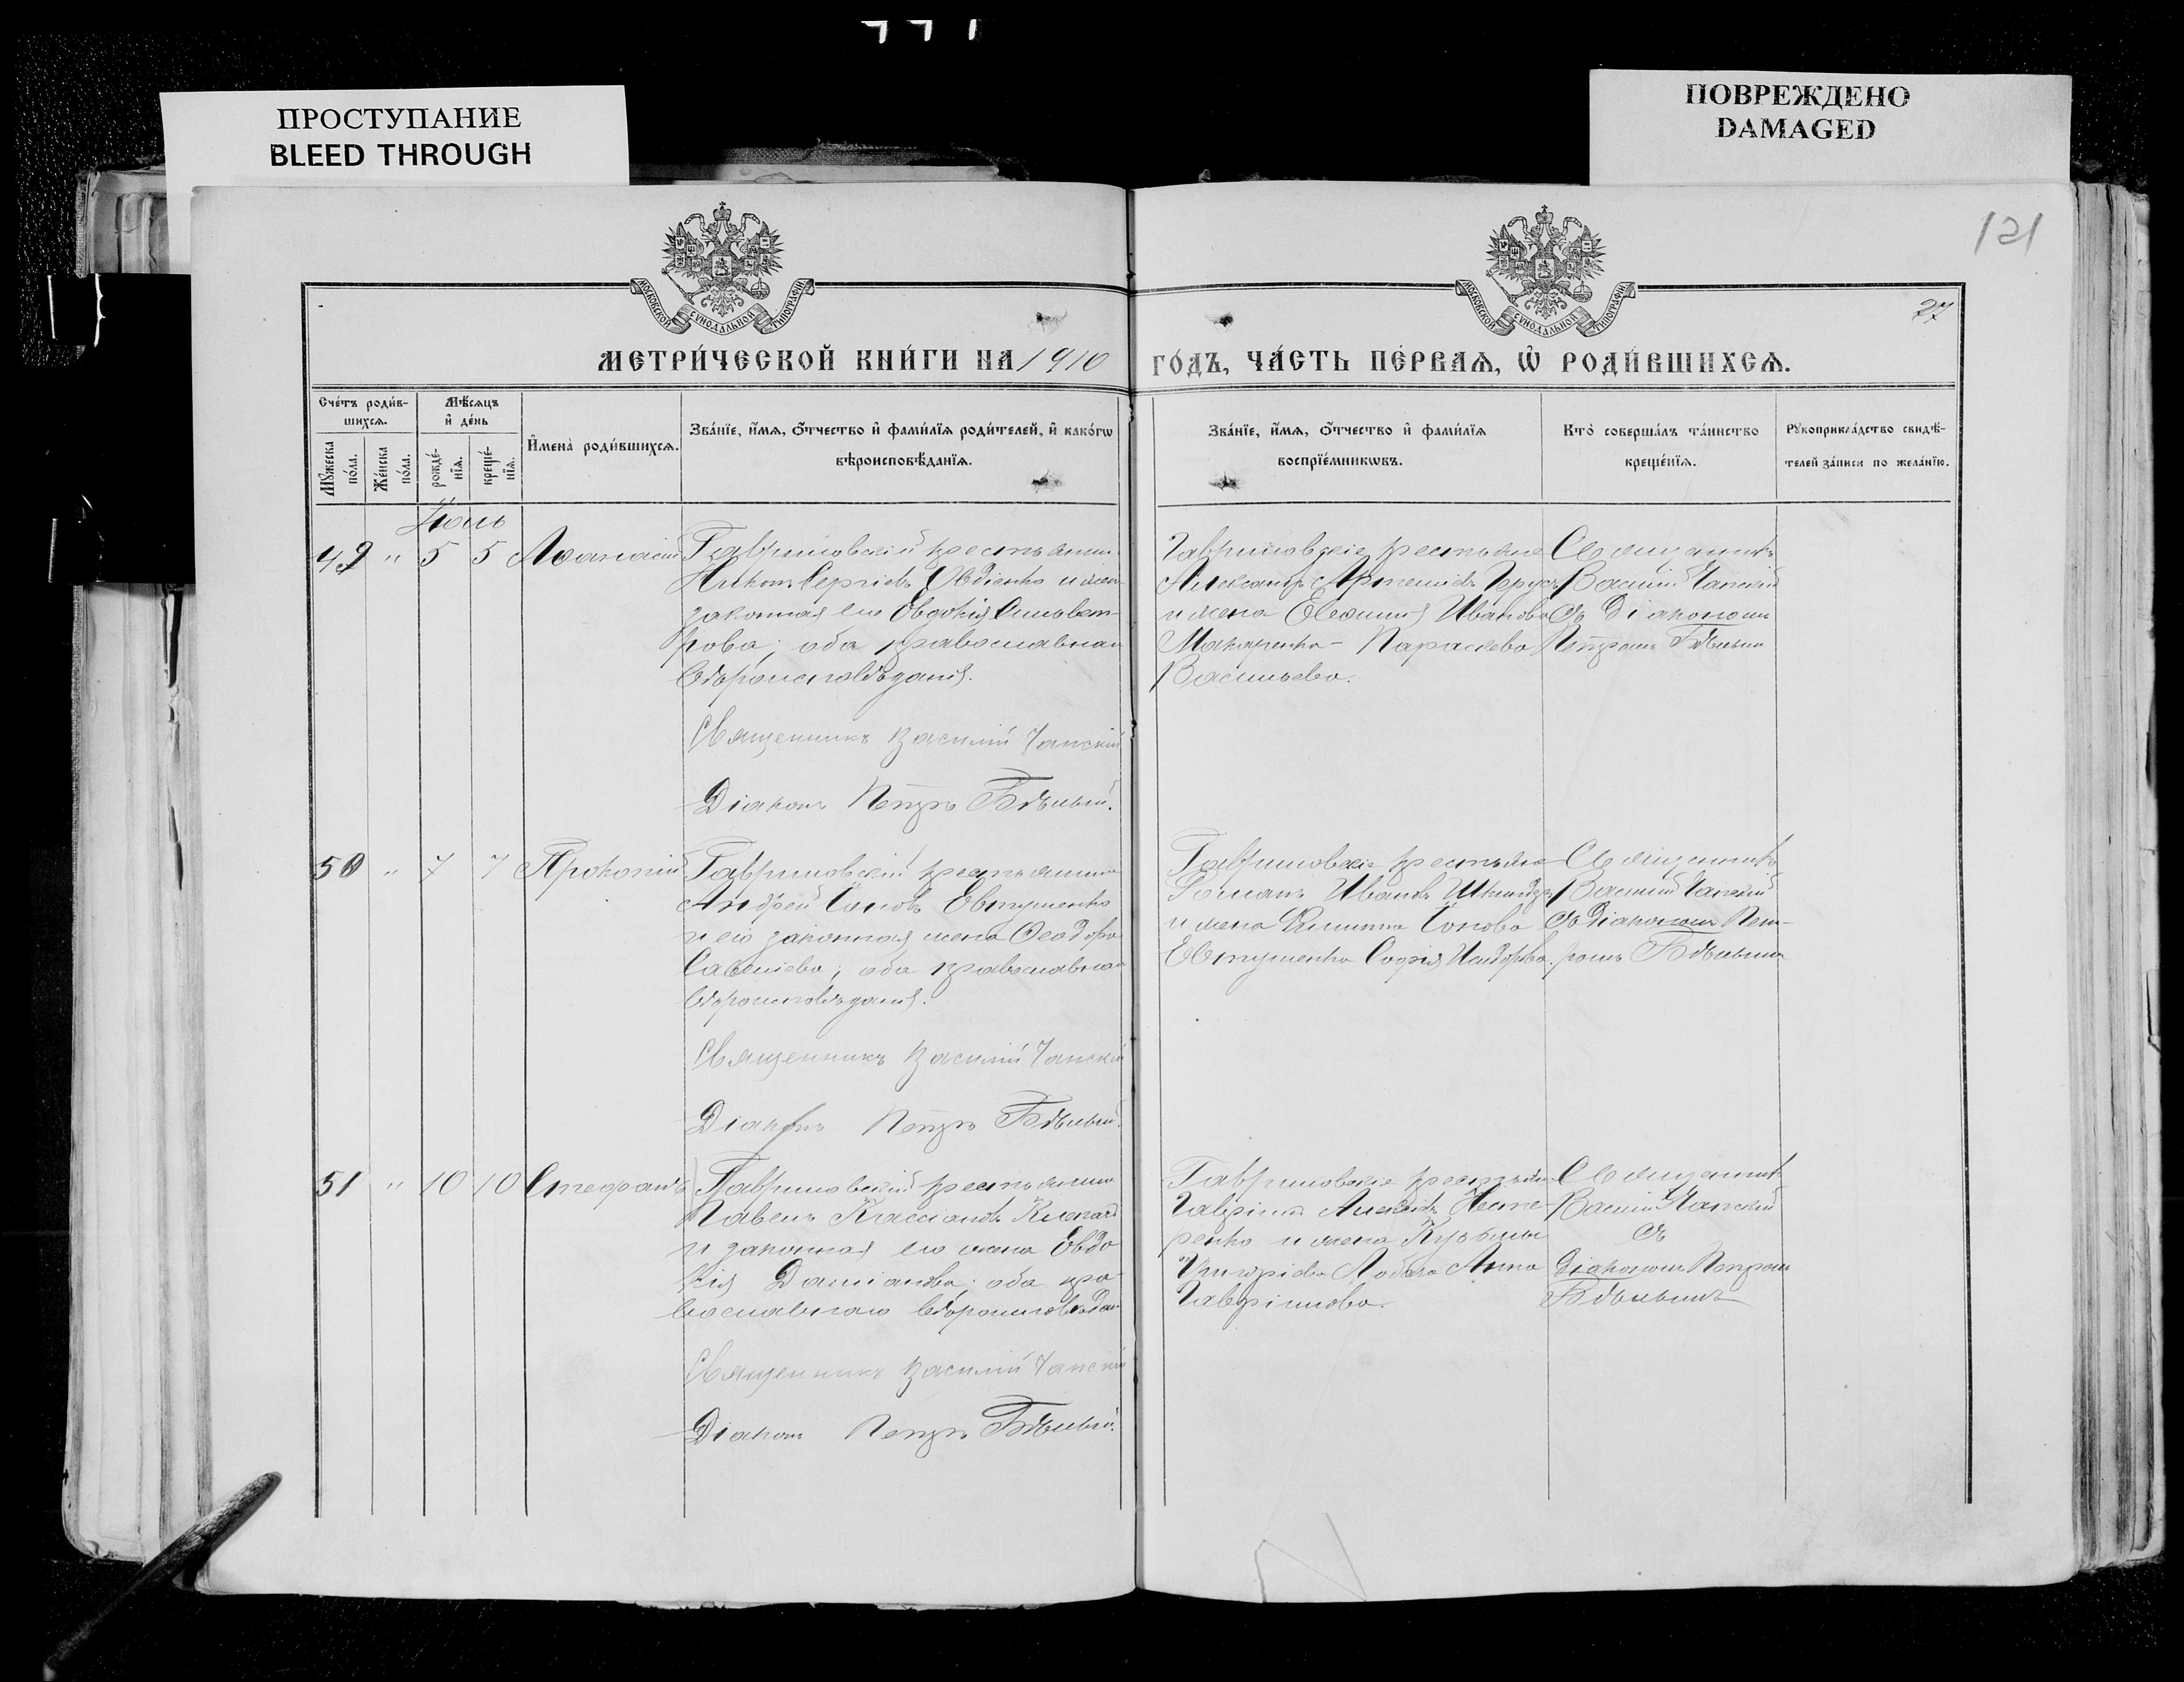 ПРОСТУПАНИЕ
BLEED THROUGH
ПОВРЕЖДЕНО
DAMAGED
121
27
МОСКОВСКОЙ СѴНОДАЛЬНОЙ ТИПОГРАФІИ
МОСКОВСКОЙ СѴНОДАЛЬНОЙ ТИПОГРАФІИ
МЕТРИ́ЧЕСКОЙ КНИ́ГИ НА 1910
ГО́ДЪ, ЧА́СТЬ ПЕ́РВАѦ, Ѡ҆ РОДИ́ВШИХСѦ.
Сче́тъ роди́в-
шихсѧ.
Мꙋ́жеска
по́ла.
Же́нска
по́ла.
Мѣ́сѧцъ
и҆ де́нь
рожде́-
нїѧ.
креще́-
нїѧ.
И҆мена̀ роди́вшихсѧ.
Зва́нїе, и҆́мѧ, ѻ҆́тчество и҆ фами́лїѧ роди́телей, и҆ како́гѡ
вѣроисповѣ́данїѧ.
Зва́нїе, и҆́мѧ, ѻ҆́тчество и҆ фами́лїѧ
воспрїе́мникѡвъ.
Кто̀ соверша́лъ та́инство
креще́нїѧ.
Рꙋкоприкла́дство свидѣ́-
телей за́писи по жела́нїю.
Іюль
49 " 5 5 Аѳанасій
Гавриловскій крестьянинъ
Никонъ Сергіевъ Овдіенко и
законная его Евдокія
рова; оба православнаго
вѣроисповѣданія.
Священникъ Василій Чапскій
Діаконъ Петръ Бѣлый.
Гавриловскіе крестьяне
Александръ Артемовъ
и жена Евфимія Иванова
Макаренко - Параскева
Васильева.
Священникъ
Василій Чапскій
съ Діакономъ
Петромъ Бѣлымъ
50 " 7 7 Прокопій
Гавриловскій крестьянинъ
Андрей Іоновъ Евтушенко
и его законная жена Ѳеодора
Савеліева; оба православнаго
вѣроисповѣданія.
Священникъ Василій Чапскій
Діаконъ Петръ Бѣлый.
Гавриловскіе крестьяне
Романъ Ивановъ
и жена Филиппа Іонова
Евтушенко Софія Исидорова.
Священникъ
Василій Чапскій
съ Діакономъ Пет-
ромъ Бѣлымъ
51 " 10 10 Стефанъ
Гавриловскій крестьянинъ
Павелъ Кассіановъ
и законная его жена Евдо
кія Даміанова; оба пра
вославнаго вѣроисповѣдан
Священникъ Василій Чапскій
Діаконъ Петръ Бѣлый.
Гавриловскіе крестьяне
Гавріилъ Алексѣевъ Несте-
ренко и жена Кузьмы
Григоріева Анна
Гавріилова.
Священникъ
Василій Чапскій
съ
Діакономъ Петромъ
Бѣлымъ